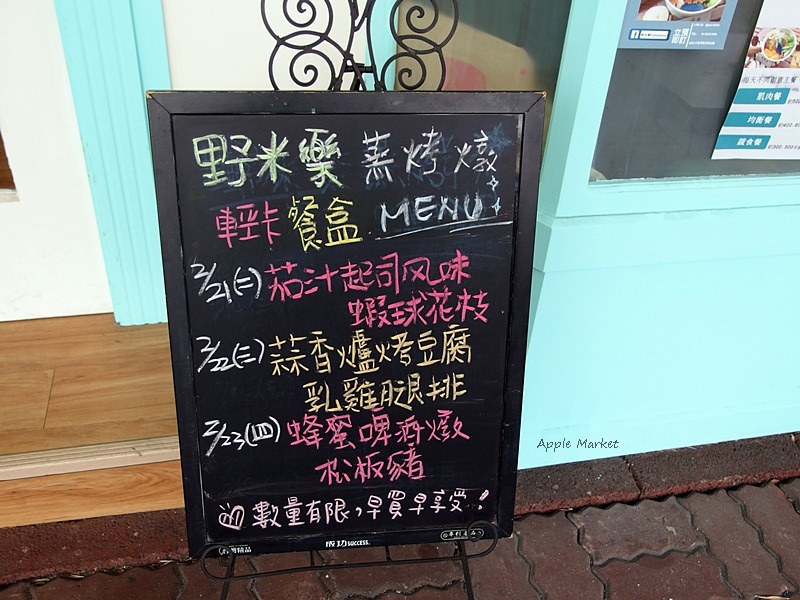 野米樂 蒸烤燉
輕卡餐盒 MENU
2/21(二)茄汁起司风味
蝦球花枝
2/22(三)蒜香爐烤豆腐
乳雞腿排
2/23(四)蜂蜜啤酒燉
松板豬
數量有限,早買早享受!
成功 SUCCESS.
Apple Market
每天不同創意主餐
肌肉餐
均衡餐
蔬食餐